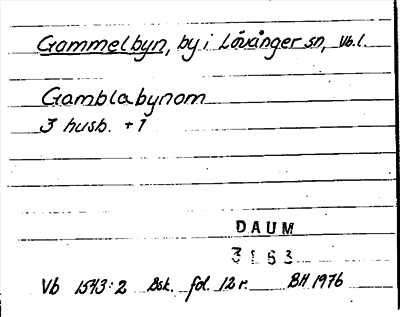 Gammelbyn, by i Lövånger sn, Vb.l.
Gamblabynom
3 husb. + 1
DAUM
3163
Vb 1543:2 Bsk. fol. 12 r. BH 1976